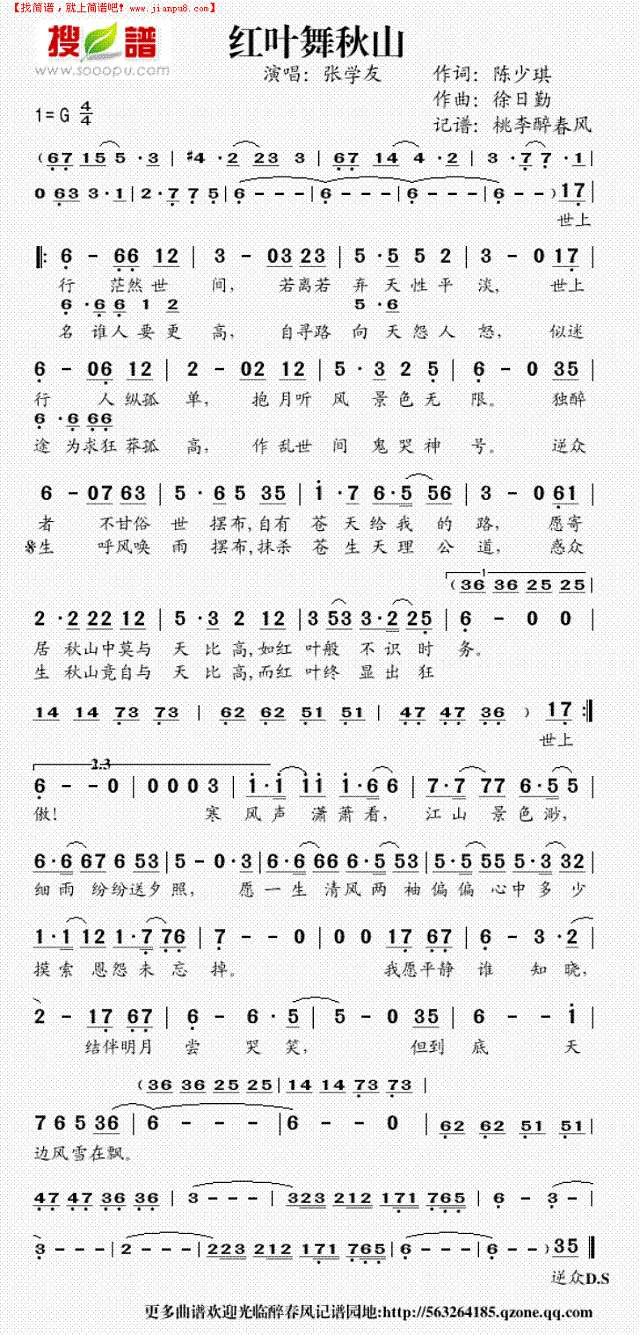 【找简谱，就上简谱吧! www.jianpu8.com】
搜谱
www.sooopu.com
红叶舞秋山
演唱：张学友 作词：陈少琪
作曲：徐日勤
1=G 4/4
记谱：桃李醉春风
(67 155·3 | #4·2 23 3 | 67 14·2 | 3·77·1 |
0 63 3·1 | 2·77 5 | 6--- | 6--- | 6--- | 6--- ) 17 |
世上
‖: 6 - 66 12 | 3 - 03 23 | 5·5 5 2 | 3 - 0 17 |
行 茫然世 间， 若离若 弃天性平 淡， 世上
6·6 6 1 2 5·6
名谁人要更 高， 自寻路 向天怨人 怒， 似迷
6 - 06 12 | 2 - 02 12 | 5·3 2 5 | 6 - 0 35 |
行 人纵孤 单， 抱月听 风景色无 限。 独醉
6·6 66
途为求狂莽孤 高， 作乱世 间鬼哭神 号。 逆众
6 - 07 63 | 5·6 5 35 | 1·7 6·5 56 | 3 - 0 61 |
者 不甘俗 世摆布,自有 苍天给我的 路， 愿寄
𝄋生 呼风唤 雨摆布,抹杀 苍生天理公 道， 惑众
1
(36 36 25 25 |
2·2 22 12 | 5·3 2 12 | 3 53 3·2 25 | 6 - 0 0
居秋山中莫与 天比高,如红 叶般不识时 务。
生秋山竞自与 天比高,而红 叶终显出狂
14 14 73 73 | 62 62 51 51 | 47 47 36 ) 17 :‖
世上
2.3
6 - - 0 | 0 0 0 3 | 1·1 11 1·6 6 | 7·7 77 6·5 5 |
傲! 寒 风声潇萧看， 江山景色渺，
6·6 67 6 53 | 5 - 0·3 | 6·6 66 6·5 53 | 5·5 55 5·3 32 |
细雨纷纷送夕 照， 愿 一生清风两袖 偏偏心中多少
1·1 12 1·7 76 | 7 - - 0 | 0 0 17 67 | 6 - 3·2 |
摸索恩怨未忘 掉。 我愿平静 谁 知晓，
2 - 17 67 | 6 - 6·5 | 5 - 0 35 | 6 - - 1 |
结伴明月 尝 哭笑， 但到 底 天
(36 36 25 25 | 14 14 73 73 |
7 6 5 36 | 6 - - - | 6 - - 0 | 62 62 51 51 |
边风雪在飘。
47 47 36 36 | 3--- | 323 212 171 765 | 6 - 3 - |
3--- | 2--- | 223 212 171 765 | 6--- | 6--- ) 35 ‖
逆众D.S
更多曲谱欢迎光临醉春风记谱园地:http://563264185.qzone.qq.com